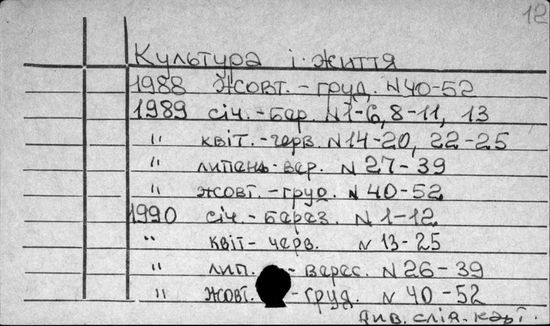 12
Культура і життя
1988 Жовт. - груд. N 40-52
1989 січ. - бер. N 1-6, 8-11, 13
" квіт. - черв. N 14-20, 22-25
" липень - вер. N 27-39
" жовт. - груд. N 40-52
1990 січ. - берез. N 1-12
" квіт - черв. N 13-25
" лип. - верес. N 26-39
" жовт. - груд. N 40-52
Див. слід. карт.